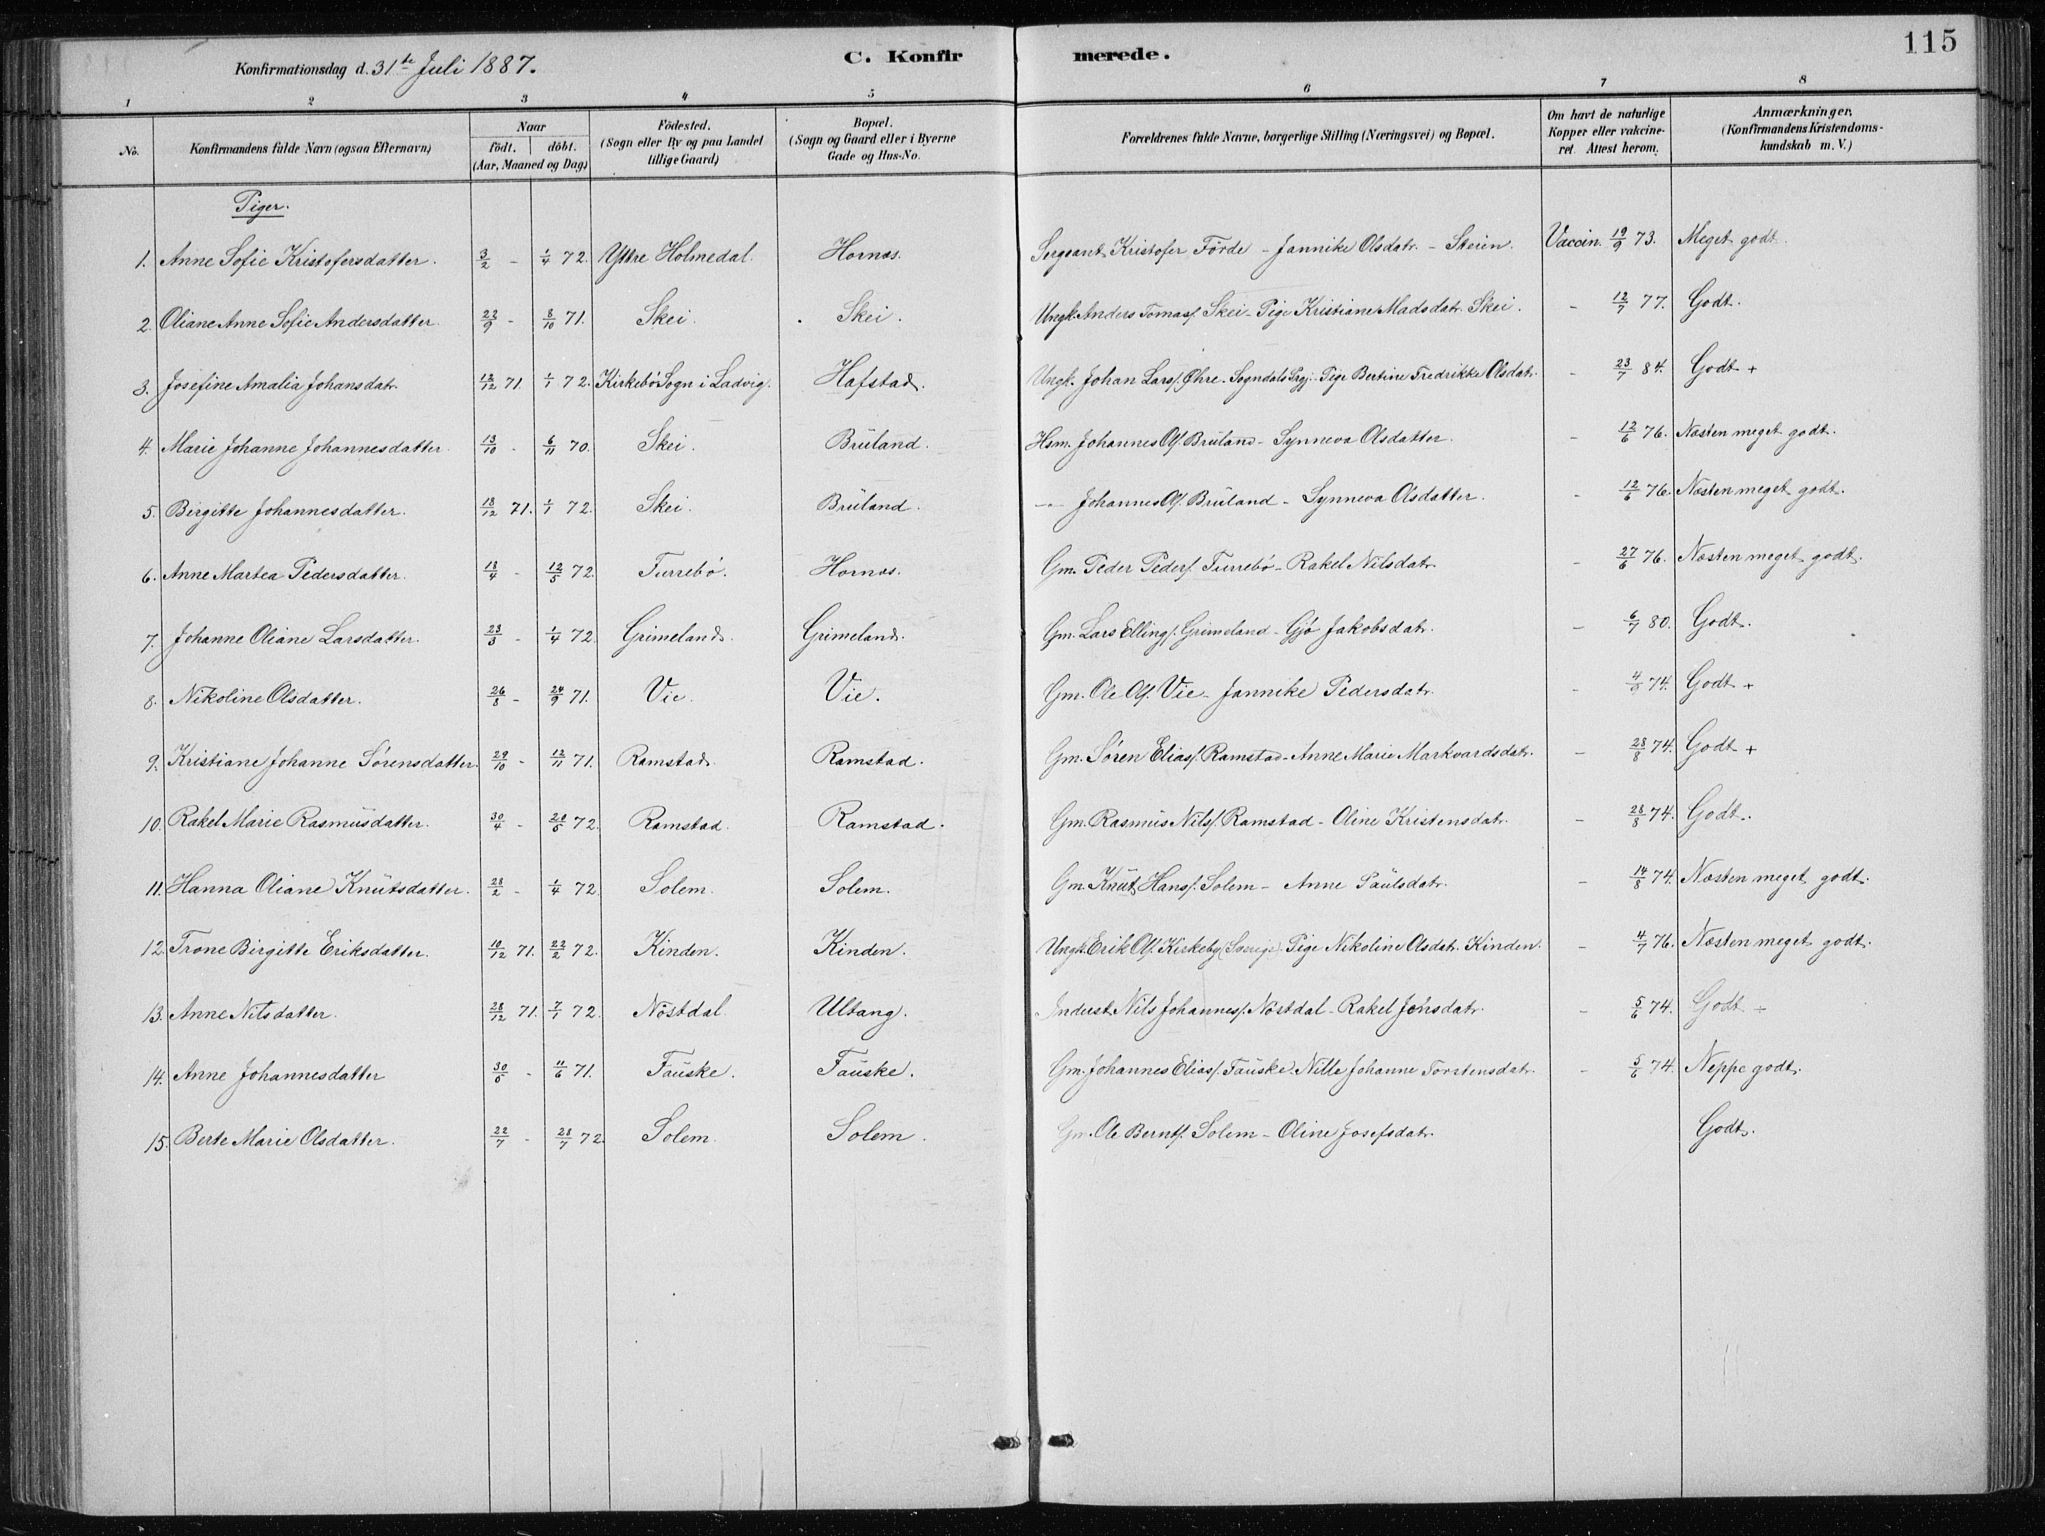 115
Konfirmationsdag d. 31te Juli 1887. C. Konfirmerede.
1 2 3 4 5 6 7 8
No. Konfirmandens fulde Navn (ogsaa Efternavn) Naar født. døbt. (Aar, Maaned og Dag) Födested. (Sogn eller By og paa Landet tillige Gaard) Bopæl. (Sogn og Gaard eller i Byerne Gade og Hus-No. Forældrenes fulde Navne, borgerlige Stilling (Næringsvei) og Bopæl. Om havt de naturlige Kopper eller vakcineret. Attest herom. Anmærkninger, (Konfirmandens Kristendomskundskab m. V.)
Piger.
1. Anne Sofie Kristofersdatter. 3/2 - 1/4 72. Yttre Holmedal. Hornæs. Sergeant Kristofer Förde - Jannike Olsdatr. - Steien. Vaccin. 19/9 73. Meget godt.
2. Oliane Anne Sofie Andersdatter. 22/9 - 8/10 71. Skei. Skei. Ungk. Anders Tomass. Skei - Pige Kristiane Madsdatr. Skei. - 12/7 77. Godt.
3. Josefine Amalia Johansdatr. 12/12 71. 1/1 72. Kirkebö Sogn i Ladvig. Hafstad. Ungk. Johan Larss. Øhre - Sogndals Prgj. - Pige Bertine Fredrikke Olsdatr. - 23/7 84. Godt +
4. Marie Johanne Johannesdatter. 13/10 - 6/11 70. Skei. Bruland. Hsm. Johannes Ols. Bruland - Synneva Olsdatter. - 12/6 76. Næsten meget godt.
5. Birgitte Johannesdatter. 18/12 71. 1/1 72. Skei. Bruland. - Johannes Ols. Bruland - Synneva Olsdatter. - 12/6 76. Næsten meget godt.
6. Anne Martea Pedersdatter. 18/4 - 12/5 72. Furrebø. Hornæs. Gm. Peder Peders. Furrebø - Rakel Nilsdatr. 27/6 76. Næsten meget godt.
7. Johanne Oliane Larsdatter. 23/3 - 1/4 72. Grimeland. Grimeland. Gm. Lars Ellings. Grimeland - Gjø Jakobsdatr. - 6/7 80. Godt.
8. Nikoline Olsdatter. 26/8 - 24/9 71. Vie. Vie. Gm. Ole Ols. Vie - Jannike Pedersdatr. - 74. Godt +
9. Kristiane Johanne Sørensdatter. 29/10 - 12/11 71. Ramstad. Ramstad. Gm. Søren Eliass. Ramstad - Anne Marie Markvardsdatr. - 28/8 74. Godt +
10. Rakel Marie Rasmusdatter. 30/4 - 20/5 72. Ramstad. Ramstad. Gm. Rasmus Nilss. Ramstad - Oline Kristensdatr. - 28/8 74. Godt.
11. Hanna Oliane Knutsdatter. 28/2 - 1/4 72. Solem. Solem. Gm. Knut Hanss. Solem - Anne Paulsdatr. - 14/8 74. Næsten meget godt.
12. Trone Birgitte Eriksdatter. 10/12 71. 22/2 72. Kinden. Kinden. Ungk. Erik Ols. Kirkeby (Sverige) Pige Nikoline Olsdatr. Kinden. - 4/7 76. Næsten meget godt.
13. Anne Nilsdatter. 28/12 71. 7/1 72. Nøstdal. Ultang. Inderst Nils Johanness. Nøstdal - Rakel Jonsdatr. - 5/6 74. Godt ÷
14. Anne Johannesdatter 30/5 - 11/6 71. Fauske. Fauske. Gm. Johannes Eliass. Fauske - Nille Johanne Torstensdatr. - 5/6 74. Neppe godt.
15. Berte Marie Olsdatter. 22/7 - 28/7 72. Solem. Solem. Gm. Ole Bernts. Solem - Oline Josefsdatr. Godt.